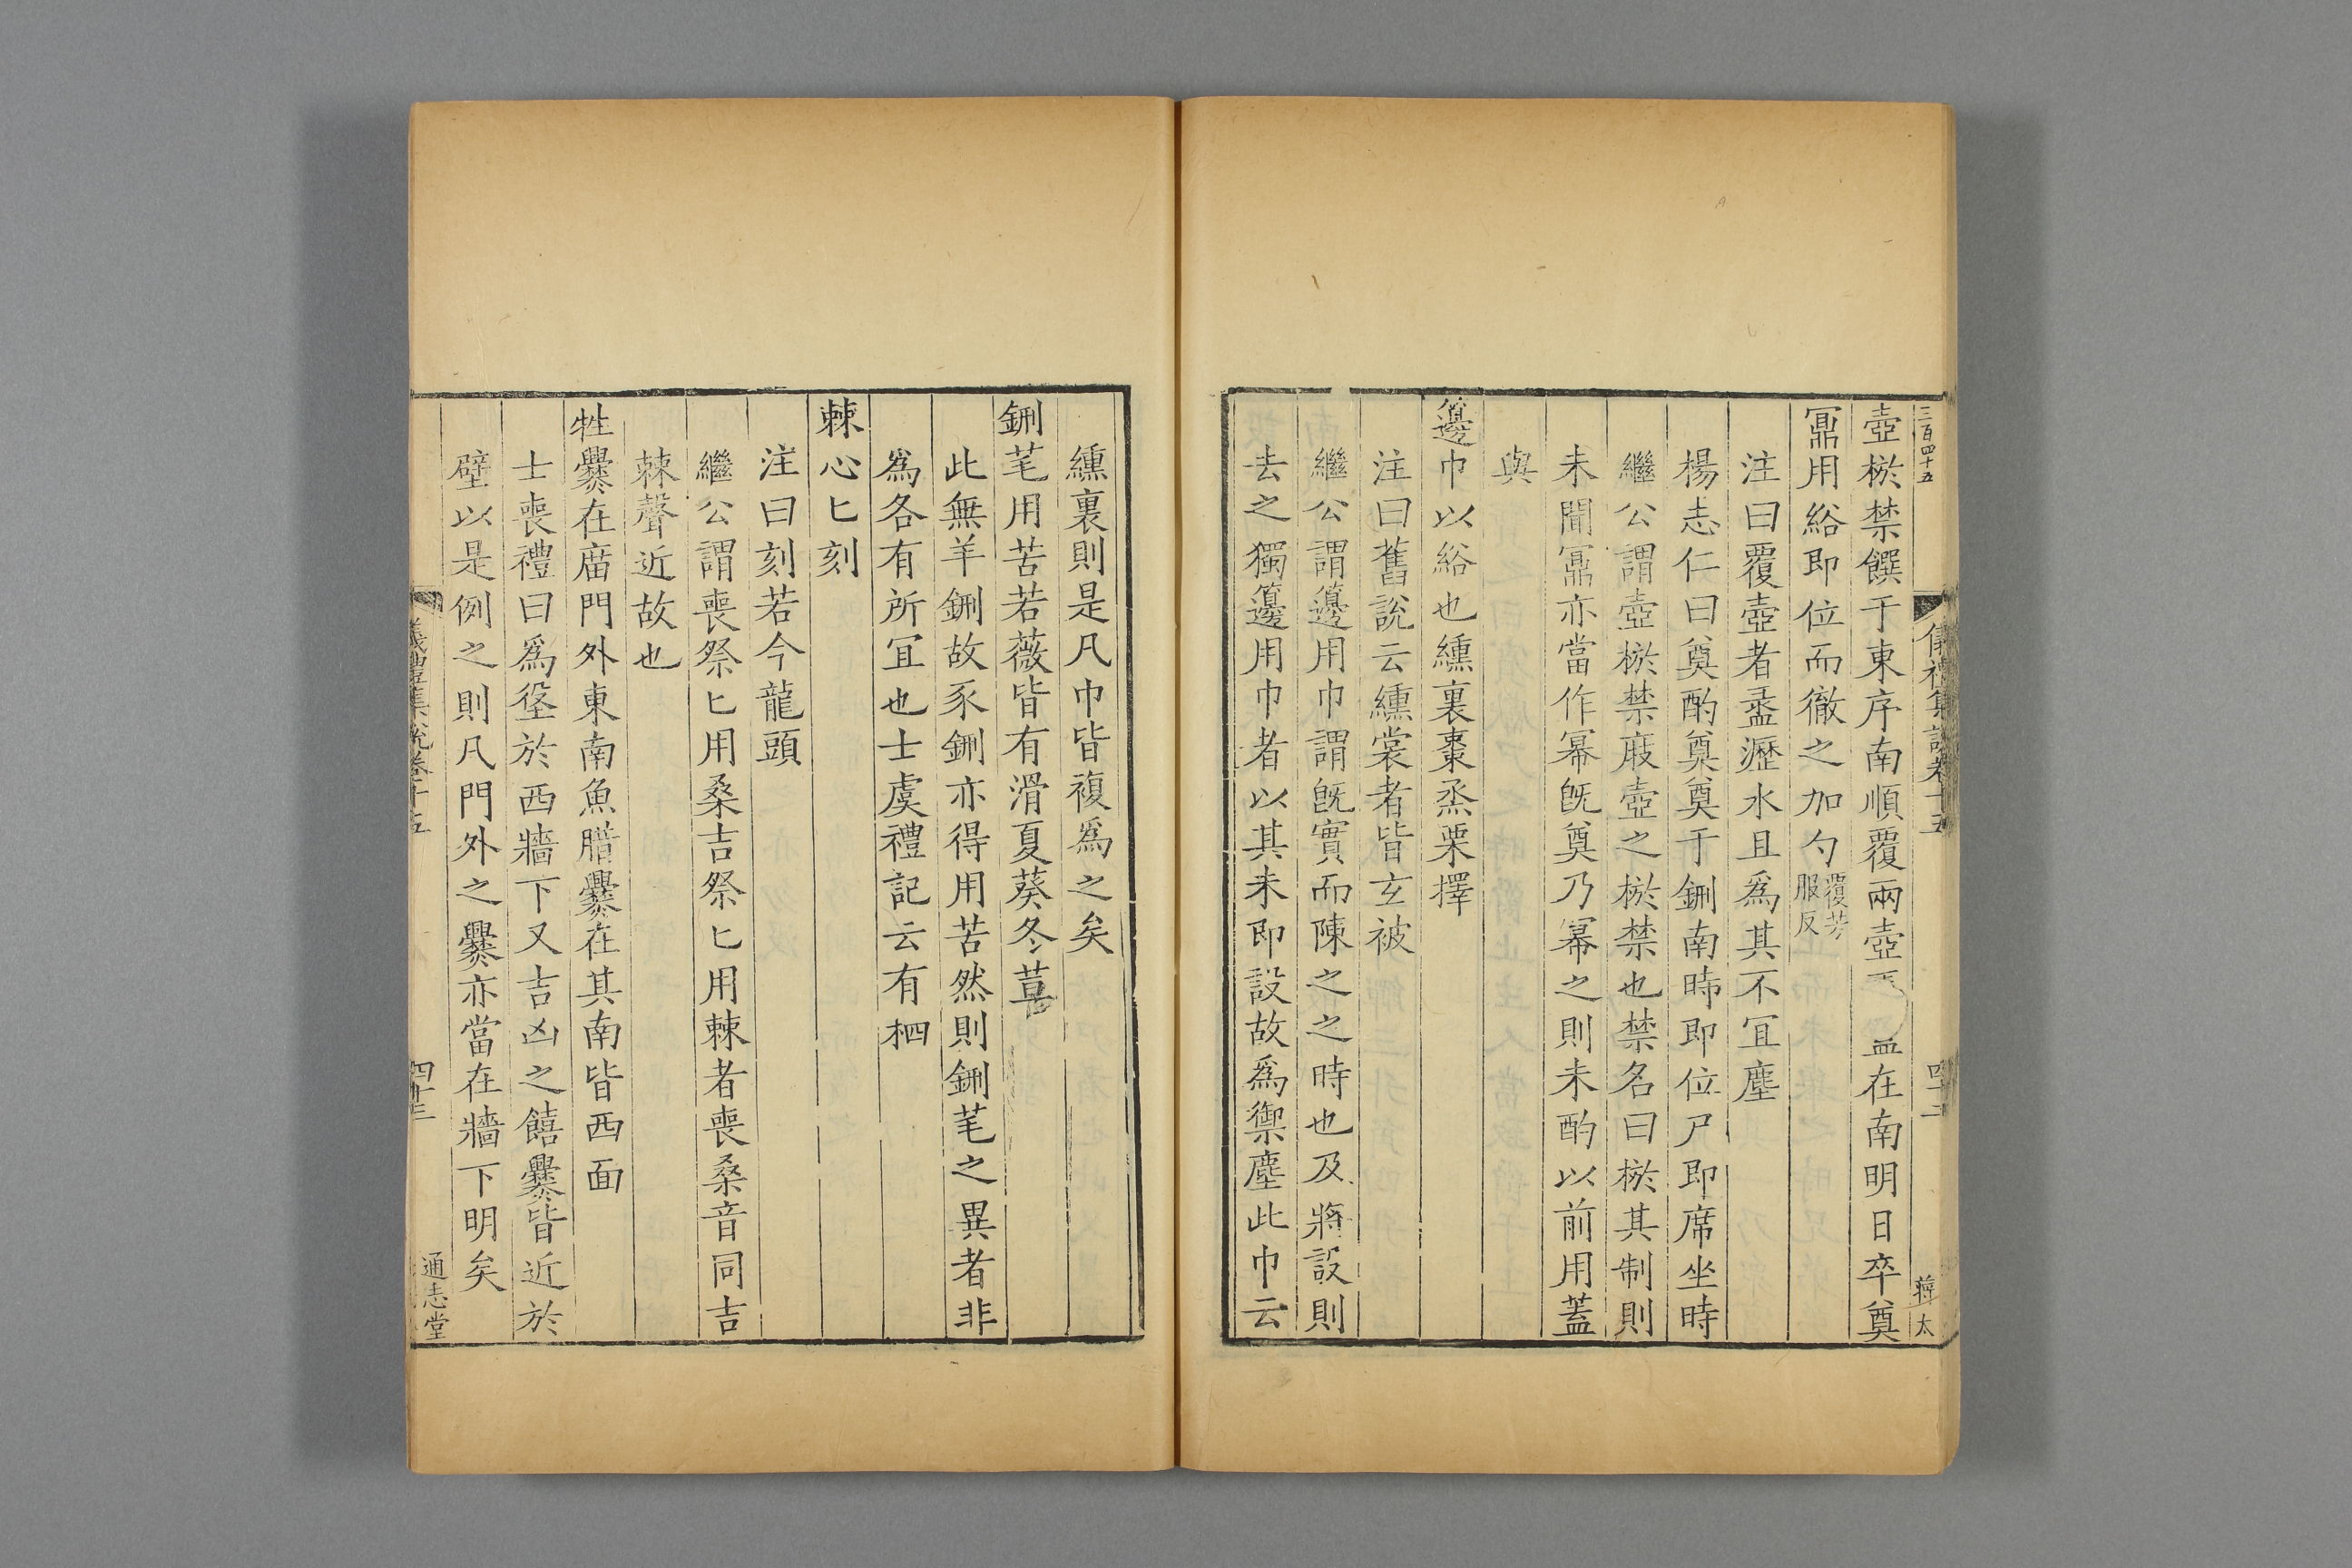 三百四十五
儀禮集說卷十五
四十二
蔣太
壺棜禁饌于東序南順覆兩壺焉蓋在南明日卒奠
鼏用綌即位而徹之加勺覆芳服反
注曰覆壺者盝瀝水且為其不冝塵
楊志仁曰奠酌奠奠于鉶南時即位尸即席坐時
繼公謂壺棜禁廄壺之棜禁也禁名曰棜其制則
未聞鼏亦當作冪旣奠乃冪之則未酌以前用蓋
與
籩巾以綌也纁裏棗烝栗擇
注曰舊說云纁裳者皆玄被
繼公謂籩用巾謂旣實而陳之之時也及將設則
去之獨籩用巾者以其未即設故為禦塵此巾云
纁裏則是凡巾皆複為之矣
鉶芼用苦若薇皆有滑夏葵冬荁
此無羊鉶故豕鉶亦得用苦然則鉶芼之異者非
為各有所冝也士虞禮記云有柶
棘心匕刻
注曰刻若今龍頭
繼公謂喪祭匕用桑吉祭匕用棘者喪桑音同吉
棘聲近故也
牲爨在庿門外東南魚腊爨在其南皆西面
士喪禮曰為垼於西牆下又吉凶之饎爨皆近於
壁以是例之則凡門外之爨亦當在牆下明矣
儀禮集說卷十五
四十三
通志堂